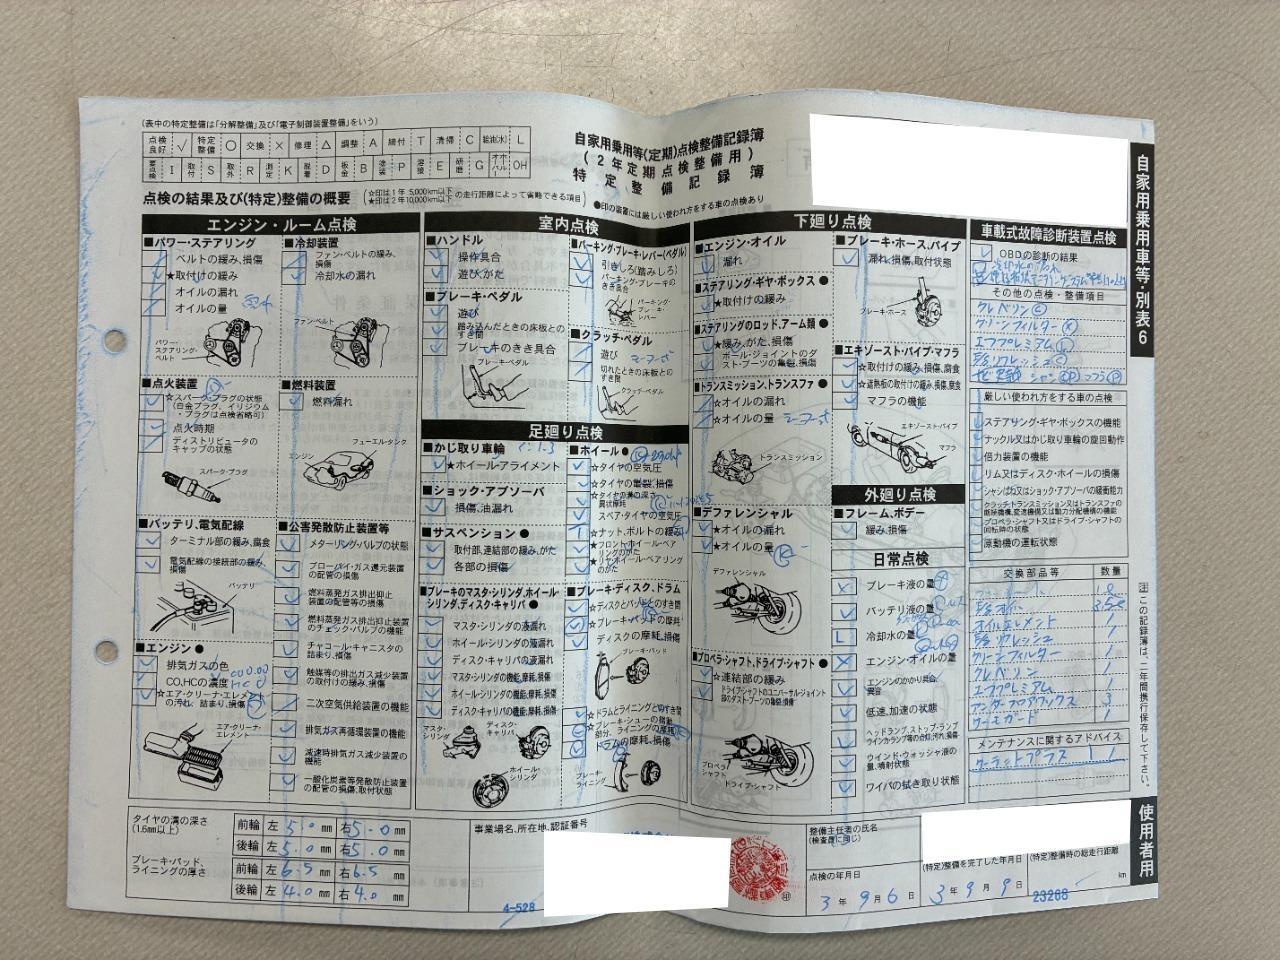 (表中の特定整備は「分解整備」及び「電子制御装置整備」をいう)
点検良好 √ 特定整備 ○ 交換 × 修理 △ 調整 A 締付 T 清掃 C 給油(水) L
要点検 I 取付 S 取外 R 測定 K 脱着 D 板金 B 塗装 P 溶接 E 研磨 G オーバーホール OH
点検の結果及び(特定)整備の概要
(☆印は1年 5,000km以下
★印は2年10,000km以下 の走行距離によって省略できる項目)
自家用乗用等(定期)点検整備記録簿
(2年定期点検整備用)
特定整備記録簿
●印の装置には厳しい使われ方をする車の点検あり
自家用乗用車等・別表6
エンジン・ルーム点検
■パワー・ステアリング
ベルトの緩み、損傷
★取付けの緩み
オイルの漏れ
オイルの量
パワー・ステアリング・ベルト
■冷却装置
ファン・ベルトの緩み、損傷
冷却水の漏れ
ファン・ベルト
■点火装置
☆スパーク・プラグの状態
(白金プラグ、イリジウム・プラグは点検省略可)
点火時期
ディストリビュータのキャップの状態
スパーク・プラグ
■燃料装置
燃料漏れ
フューエル・タンク
エンジン
■バッテリ、電気配線
ターミナル部の緩み、腐食
電気配線の接続部の緩み、損傷
バッテリ
■公害発散防止装置等
メターリング・バルブの状態
ブローバイ・ガス還元装置の配管の損傷
燃料蒸発ガス排出抑止装置の配管等の損傷
燃料蒸発ガス排出抑止装置のチェック・バルブの機能
チャコール・キャニスタの詰まり、損傷
触媒等の排出ガス減少装置の取付けの緩み、損傷
二次空気供給装置の機能
排気ガス再循環装置の機能
減速時排気ガス減少装置の機能
一酸化炭素等発散防止装置の配管の損傷、取付状態
■エンジン ●
排気ガスの色
CO,HCの濃度
CO 0.00
HC 0
☆エア・クリーナ・エレメントの汚れ、詰まり、損傷
エア・クリーナ・エレメント
室内点検
■ハンドル
操作具合
遊び、がた
■ブレーキ・ペダル
遊び
踏み込んだときの床板とのすき間
ブレーキのきき具合
ブレーキ・ペダル
■パーキング・ブレーキ・レバー(ペダル)
引きしろ(踏みしろ)
パーキング・ブレーキのきき具合
パーキング・ブレーキ・レバー
■クラッチ・ペダル
遊び
切れたときの床板とのすき間
クラッチ・ペダル
足廻り点検
■かじ取り車輪
★ホイール・アライメント
■ショック・アブソーバ
損傷、油漏れ
■サスペンション ●
取付部、連結部の緩み、がた
各部の損傷
■ホイール ●
☆タイヤの空気圧
☆タイヤの亀裂、損傷
☆タイヤの溝の深さ、異状摩耗
スペア・タイヤの空気圧
☆ナット、ボルトの緩み
★フロント・ホイール・ベアリングのがた
★リヤ・ホイール・ベアリングのがた
■ブレーキのマスタ・シリンダ、ホイール・シリンダ、ディスク・キャリパ ●
マスタ・シリンダの液漏れ
ホイール・シリンダの液漏れ
ディスク・キャリパの液漏れ
マスタ・シリンダの機能、摩耗、損傷
ホイール・シリンダの機能、摩耗、損傷
ディスク・キャリパの機能、摩耗、損傷
マスタ・シリンダ
ディスク・キャリパ
ホイール・シリンダ
■ブレーキ・ディスク、ドラム
☆ディスクとパッドとのすき間
☆ブレーキ・パッドの摩耗
ディスクの摩耗、損傷
ブレーキ・パッド
☆ドラムとライニングとのすき間
☆ブレーキ・シューの摺動部分、ライニングの摩耗
ドラムの摩耗、損傷
ブレーキ・ライニング
下廻り点検
■エンジン・オイル
漏れ
■ステアリング・ギヤ・ボックス ●
★取付けの緩み
■ステアリングのロッド、アーム類 ●
★緩み、がた、損傷
ボール・ジョイントのダスト・ブーツの亀裂、損傷
■トランスミッション、トランスファ ●
☆オイルの漏れ
☆オイルの量
トランスミッション
■デファレンシャル
★オイルの漏れ
★オイルの量
デファレンシャル
■プロペラ・シャフト、ドライブ・シャフト ●
☆連結部の緩み
ドライブ・シャフトのユニバーサル・ジョイント部のダスト・ブーツの亀裂、損傷
プロペラ・シャフト
ドライブ・シャフト
■ブレーキ・ホース、パイプ
漏れ、損傷、取付状態
ブレーキ・ホース
■エキゾースト・パイプ・マフラ
☆取付けの緩み、損傷、腐食
☆遮熱板の取付けの緩み、損傷、腐食
マフラの機能
エキゾースト・パイプ
マフラ
外廻り点検
■フレーム、ボデー
緩み、損傷
日常点検
ブレーキ液の量
バッテリ液の量
冷却水の量
エンジン・オイルの量
エンジンのかかり具合、異音
低速、加速の状態
ヘッドランプ、ストップ・ランプ、ウインカランプ等の点灯、汚れ、損傷
ウインド・ウォッシャ液の量、噴射状態
ワイパの拭き取り状態
車載式故障診断装置点検
OBDの診断の結果
その他の点検・整備項目
クレベリン C
クリーンフィルター ×
エフプレミアム L
厳しい使われ方をする車の点検
ステアリング・ギヤ・ボックスの機能
ナックル又はかじ取り車輪の旋回動作
倍力装置の機能
リム又はディスク・ホイールの損傷
シャシばね又はショック・アブソーバの緩衝能力
クラッチ、トランスミッション又はトランスファの駆除機、変速機構又は動力分配機構の機能
プロペラ・シャフト又はドライブ・シャフトの回転時の状態
原動機の運転状態
交換部品等 数量
オイルエレメント 1
クリーンフィルター 1
クレベリン 1
エフプレミアム 1
メンテナンスに関するアドバイス
注 この記録簿は、二年間携行保存して下さい。
使用者用
タイヤの溝の深さ
(1.6mm以上)
前輪 左 5.0 mm 右 5.0 mm
後輪 左 5.0 mm 右 5.0 mm
ブレーキ・パッド、ライニングの厚さ
前輪 左 6.5 mm 右 6.5 mm
後輪 左 4.0 mm 右 4.0 mm
事業場名、所在地、認証番号
4-528
㊞
整備主任者の氏名
(検査員に同じ)
点検の年月日
3年9月6日
(特定)整備を完了した年月日
3年9月9日
(特定)整備時の総走行距離
23268 km